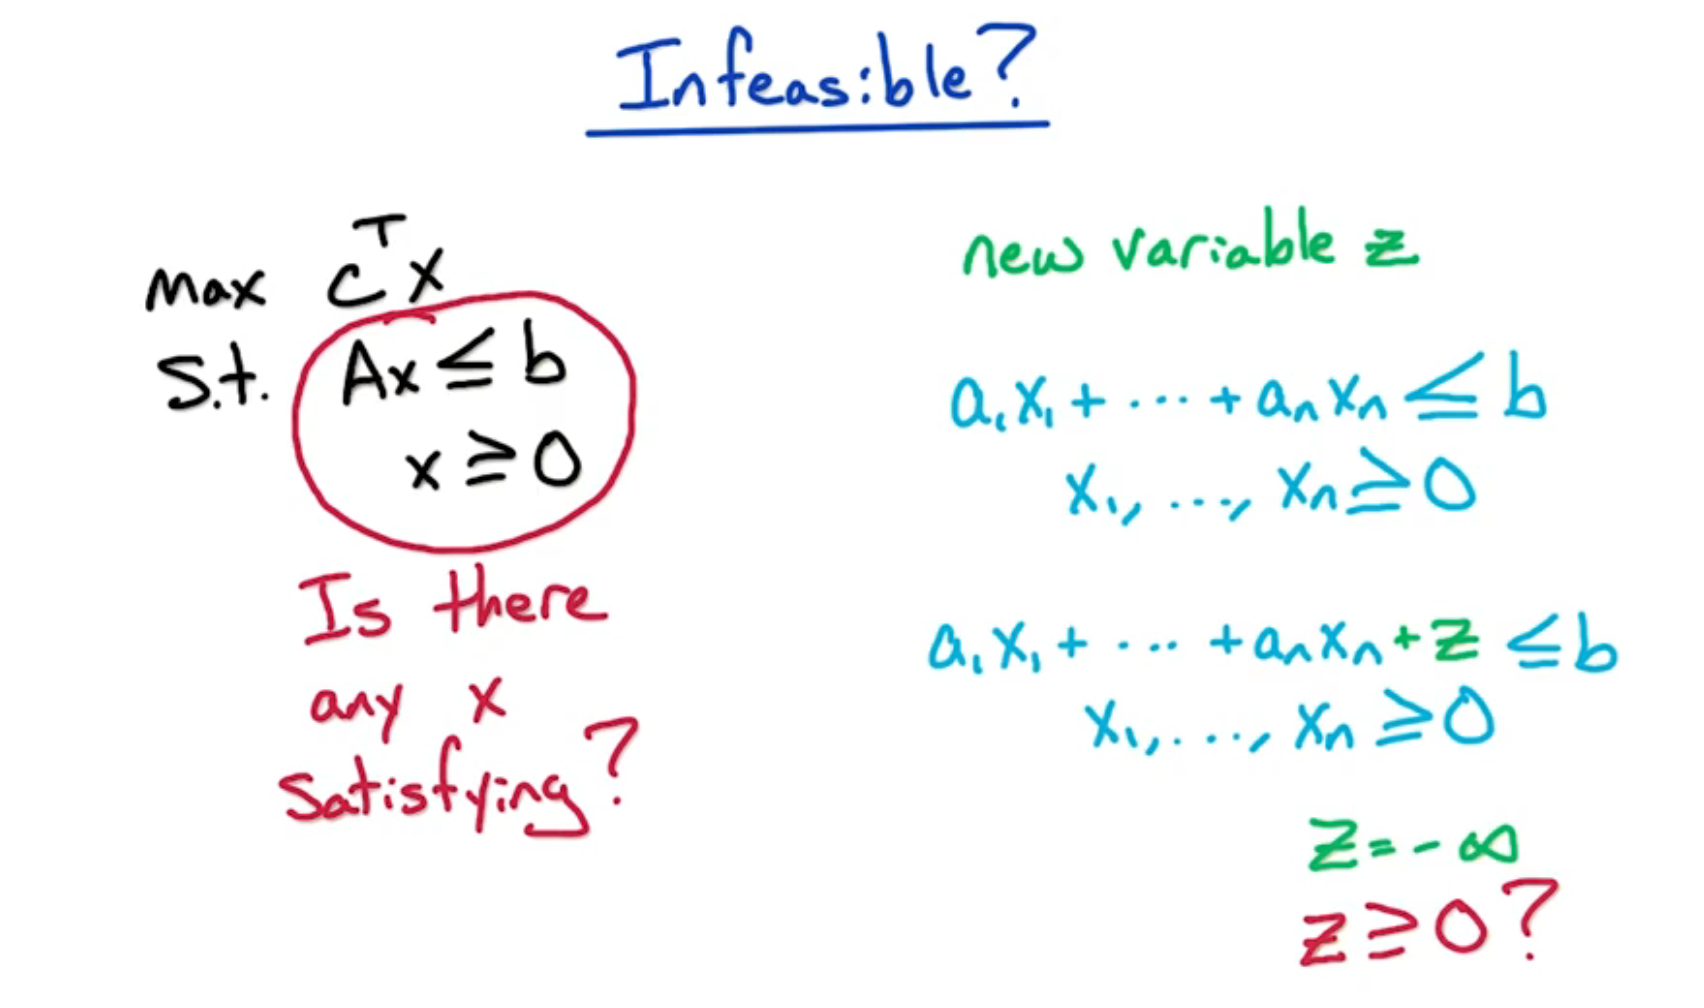 Infeasible?
max cᵀx
s.t. Ax ≤ b
x ≥ 0
Is there
any x
satisfying?
new variable z
a₁x₁ + ··· + aₙxₙ ≤ b
x₁, ..., xₙ ≥ 0
a₁x₁ + ··· + aₙxₙ + z ≤ b
x₁, ..., xₙ ≥ 0
z = -∞
z ≥ 0?